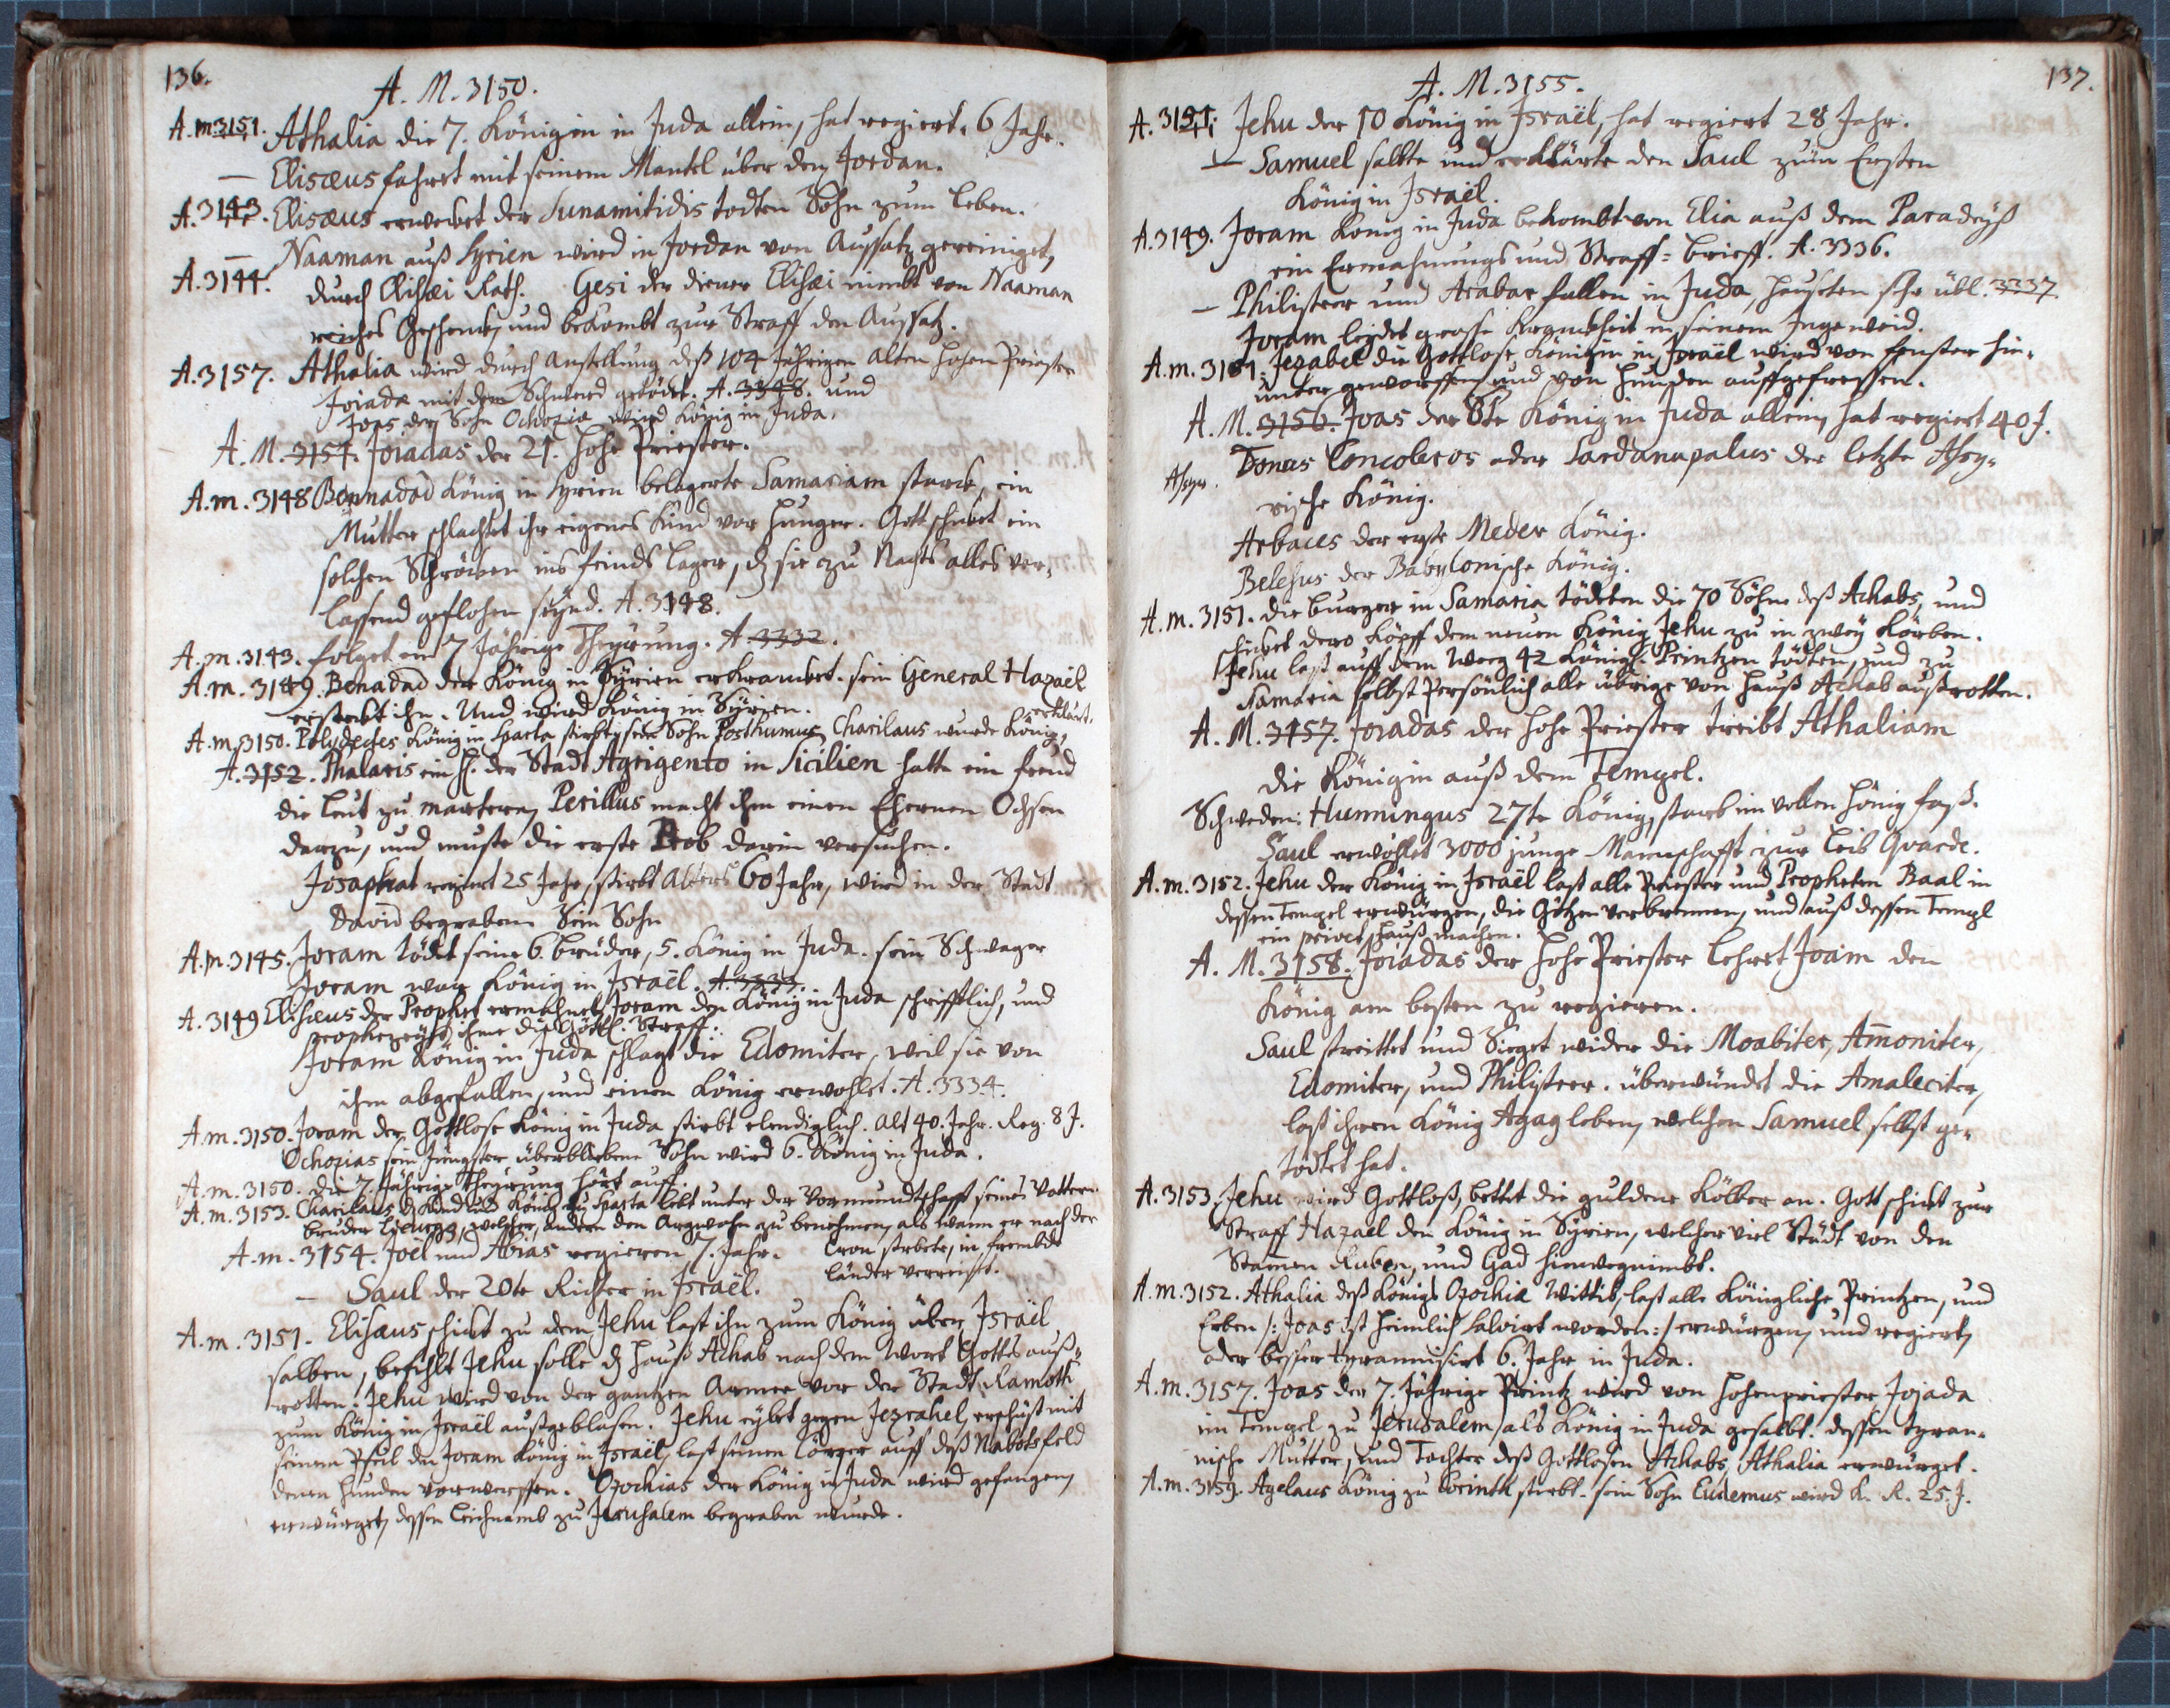 136.
A. M. 3150.
A. m 3151. Athalia die 7. Königin in Juda allein, hat regiert. 6 Jahr.
— Elisæus fahret mit seinem Mantel über den Jordan.
A. 3143. Elisæus erwecket der Sunamitidis todten Sohn zum Leben.
— Naaman auß Syrien wird in Jordan von Aussatz gereiniget,
A. 3144. durch Elisæi Rath. Gesi der diener Elisæi nimbt von Naaman
reiches Geschenk, und bekombt zur Straff den Aussatz.
A. 3157. Athalia wird durch anstellung deß 104 Jährigen alten hohen Priester
Joiadæ mit dem Schwerd getödtet. A. 3348. und
Joas der Sohn Ochoziæ wird König in Juda.
A. M. 3154. Joiadas der 21. hohe Priester.
A. m. 3148 Bennadad König in Syrien belagerte Samariam starck, ein
Mutter schlachtet ihr eigenes Kind vor hunger. Gott schicket ein
solchen Schröcken ins feinds Lager, dz sie zu Nachts alles ver-
lassend geflohen seynd. A. 3148.
A. m. 3143. folget ein 7 Jährige Theurung. A. 3332.
A. m. 3149. Benadad der König in Syrien erkrancket. sein General Hazaël
ersteckt ihn. Und wird König in Syrien.
A. m. 3150. Polydectes König in Sparta stirbt, sein Sohn Posthumus Charilaus wurde König, erklärt.
A. 3152. Phalaris ein H. der Stadt Agrigento in Sicilien hatte ein freud
die Leut zu marteren, Perillus macht ihm einen Ehernen Ochsen
darzu, und muste die erste Prob darin versuchen.
Josaphat regiert 25 Jahr, stirbt Alters 60 Jahr, wird in der Stadt
David begraben. Sein Sohn
A. m. 3145. Joram tödet seine 6. brüder, 5. König in Juda. sein Schwager
Joram war König in Israël. A. 3333.
A. 3149 Elisæus der Prophet ermahnet Joram den König in Juda schrifftlich, und
prophezeyht ihme die Göttl. Straff.
Joram König in Juda schlagt die Edomiter, weil sie von
ihm abgefallen, und einen König erwöhlet. A. 3334.
A. m. 3150. Joram der Gottlose König in Juda stirbt elendiglich. alt 40. Jahr. Reg. 8 J.
Ochozias sein Jüngster überblibene Sohn wird 6. König in Juda.
A. m. 3150. die 7. Jährige Theurung hört auff.
A. m. 3153. Charilaus dz Kind und König zu Sparta lebt unter der Vormundschafft seines Vatters
bruder Licurgi, welcher, andern den Argwohn zu benehmen, als wann er nach der
Cron strebete, in frembde
länder verreiset.
A. m. 3154. Joël und Abias regieren 7. Jahr.
— Saul der 20te Richter in Israël.
A. m. 3151. Elisæus schickt zu dem Jehu last ihn zum König über Israël
salben, befihlt Jehu solle dz Hauß Achab nach dem Wort Gotts auß-
rotten. Jehu wird von der gantzen Armee vor der Stadt Ramoth
zum König in Israël außgeblasen. Jehu eylet gegen Jezrahel, erschüst mit
seinem Pfeil den Joram König in Israël, last seinen Cörper auff deß Nabots feld
denen hunden vorwerffen. Ozochias der König in Juda wird gefangen,
erwürget, dessen Leichnamb zu Jerusalem begraben wurde.
137.
A. M. 3155.
A. 3151. Jehu der 10 König in Israël, hat regiert 28 Jahr.
— Samuel salbte und erklärte den Saul zum Ersten
König in Israël.
A. 3149. Joram König in Juda bekombt von Elia auß dem Paradeyß
ein Ermahnungs und Straff=brieff. A. 3336.
— Philisteer und Arabar fallen in Juda, hauseten sehr übl. 3337.
Joram leydet grosse Kranckheit in seinem Ingeweid.
A. m. 3151. Jezabel die Gottlose Königin in Israël wird von fenster hin-
unter geworffen, und von hunden auffgefressen.
A. M. 3156. Joas der 8te König in Juda allein, hat regiert 40 J.
Assyr. Tonus Concoleros oder Sardanapalus der letzte Assy-
rische König.
Arbaces der erste Meder König.
Belesus der Babylonische König.
A. m. 3151. die burger in Samaria tödeten die 70 Söhne deß Achabs, und
schicket dero Köpff dem neuen König Jehu zu in zwey Körben.
Jehu last auff dem Weeg 42 Königl. Printzen tödten, und zu
Samaria selbst Persönlich alle übrige von Hauß Achab außrotten.
A. M. 3157. Joiadas der hohe Priester treibt Athaliam
die Königin auß dem Tempel.
Schweden: Hunningus 27te König, starb im vollen hönig faß.
Saul erwöhlet 3000 junge Mannschafft zur Leib Gvarde.
A. m. 3152. Jehu der König in Israël last alle Priester und Propheten Baal in
dessen Tempel erwürgen, die Götzen verbrennen, und auß dessen Templ
ein privet hauß machen.
A. M. 3158. Joiadas der hohe Priester lehret Joam den
König am besten zu regieren.
Saul streittet und Sieget wider die Moabiter, Ammoniter,
Edomiter, und Philisteer. überwündet die Amaleciter,
last ihren König Agag leben, welchen Samuel selbst ge-
tödtet hat.
A. 3153. Jehu wird Gottloß, bettet die guldene Kölber an. Gott schickt zur
Straff Hazaël den König in Syrien, welcher viel Städt von den
Stammen Ruben, und Gad hinwegnimbt.
A. m. 3152. Athalia deß Königs Ozochiæ Wittib, last alle Königliche Printzen, und
Erben /: Joas ist heimlich salvirt worden :/ erwürgen, und regiert,
oder besser tyrannisirt 6. Jahr in Juda.
A. m. 3157. Joas der 7. Jährige Printz wird von hohenpriester Jojada
im Tempel zu Jerusalem, als König in Juda gesalbt. dessen tyran-
nische Mutter, und Tochter deß Gottlosen Achabs, Athalia erwürget.
A. m. 3159. Agelaus König zu Corinth stirbt. sein Sohn Eudemus wird K. R. 25. J.